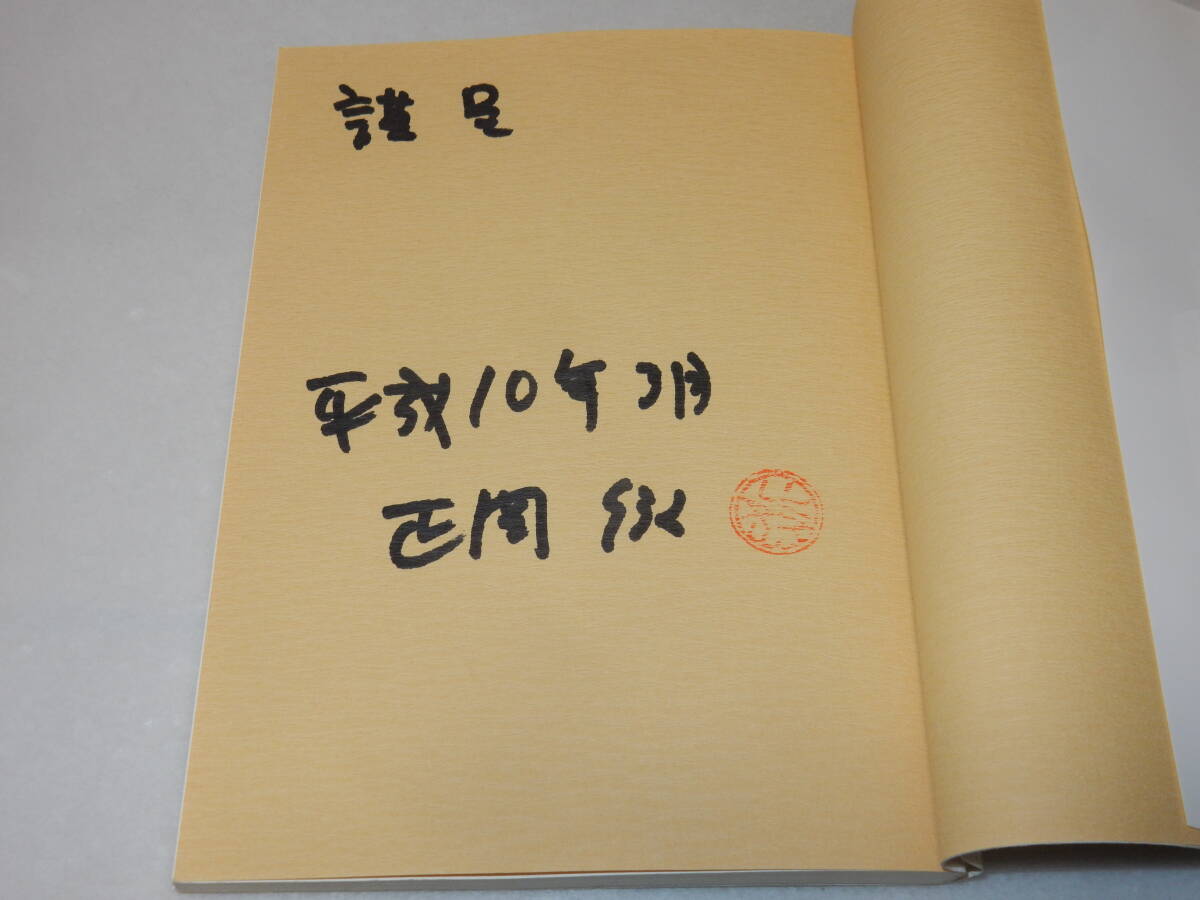 謹呈
平成10年7月
正岡